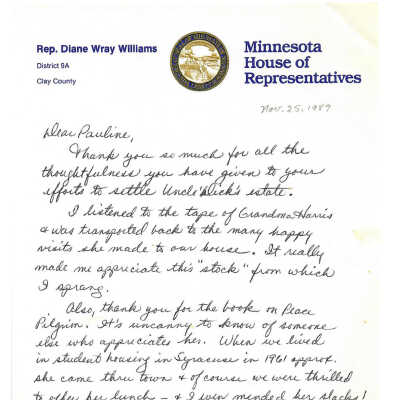 Rep. Diane Wray Williams
District 9A
Clay County
Minnesota
House of
Representatives
Nov. 25, 1989
Dear Pauline,
Thank you so much for all the
thoughtfulness you have given to your
efforts to settle Uncle Dick's estate.
I listened to the tape of Grandma Harris
& was transported back to the many happy
visits she made to our house. It really
made me appreciate this "stock" from which
I sprang.
Also, thank you for the book on Peace
Pilgrim. It's uncanny to know of someone
else who appreciates her. When we lived
in student housing in Syracuse in 1961 approx.
she came thru town & of course we were thrilled
to offer her lunch - & I even mended her slacks!